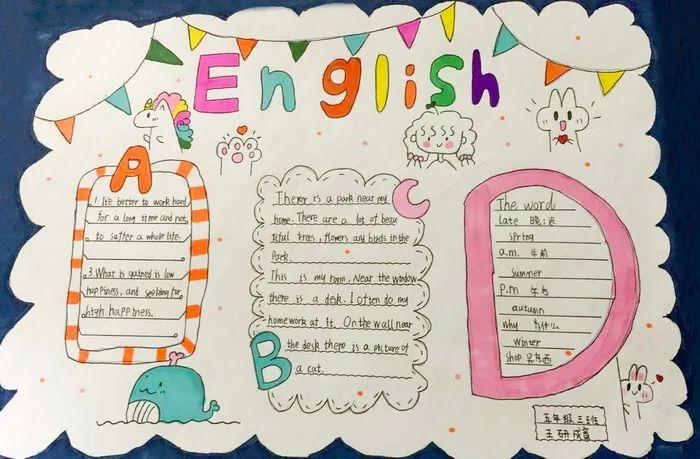 English
A
1 It's better to work hard
for a long time and not
to suffer a whole life.
3.What is gained is low
happiness, and seeking for
high happiness.
There is a park near my
home. There are a lot of beau
tiful trees, flowers any birds in the
Park.
This is my room. Near the window
there is a desk. I often do my
homework at it. On the wall near
the desk there is a picture of
a cat.
B
C
D
The word
late 晚;迟
spring
a.m. 午前
summer
P.m 午后
autumn
why 为什么
Winter
shop 买东西
五年级三班
王研成